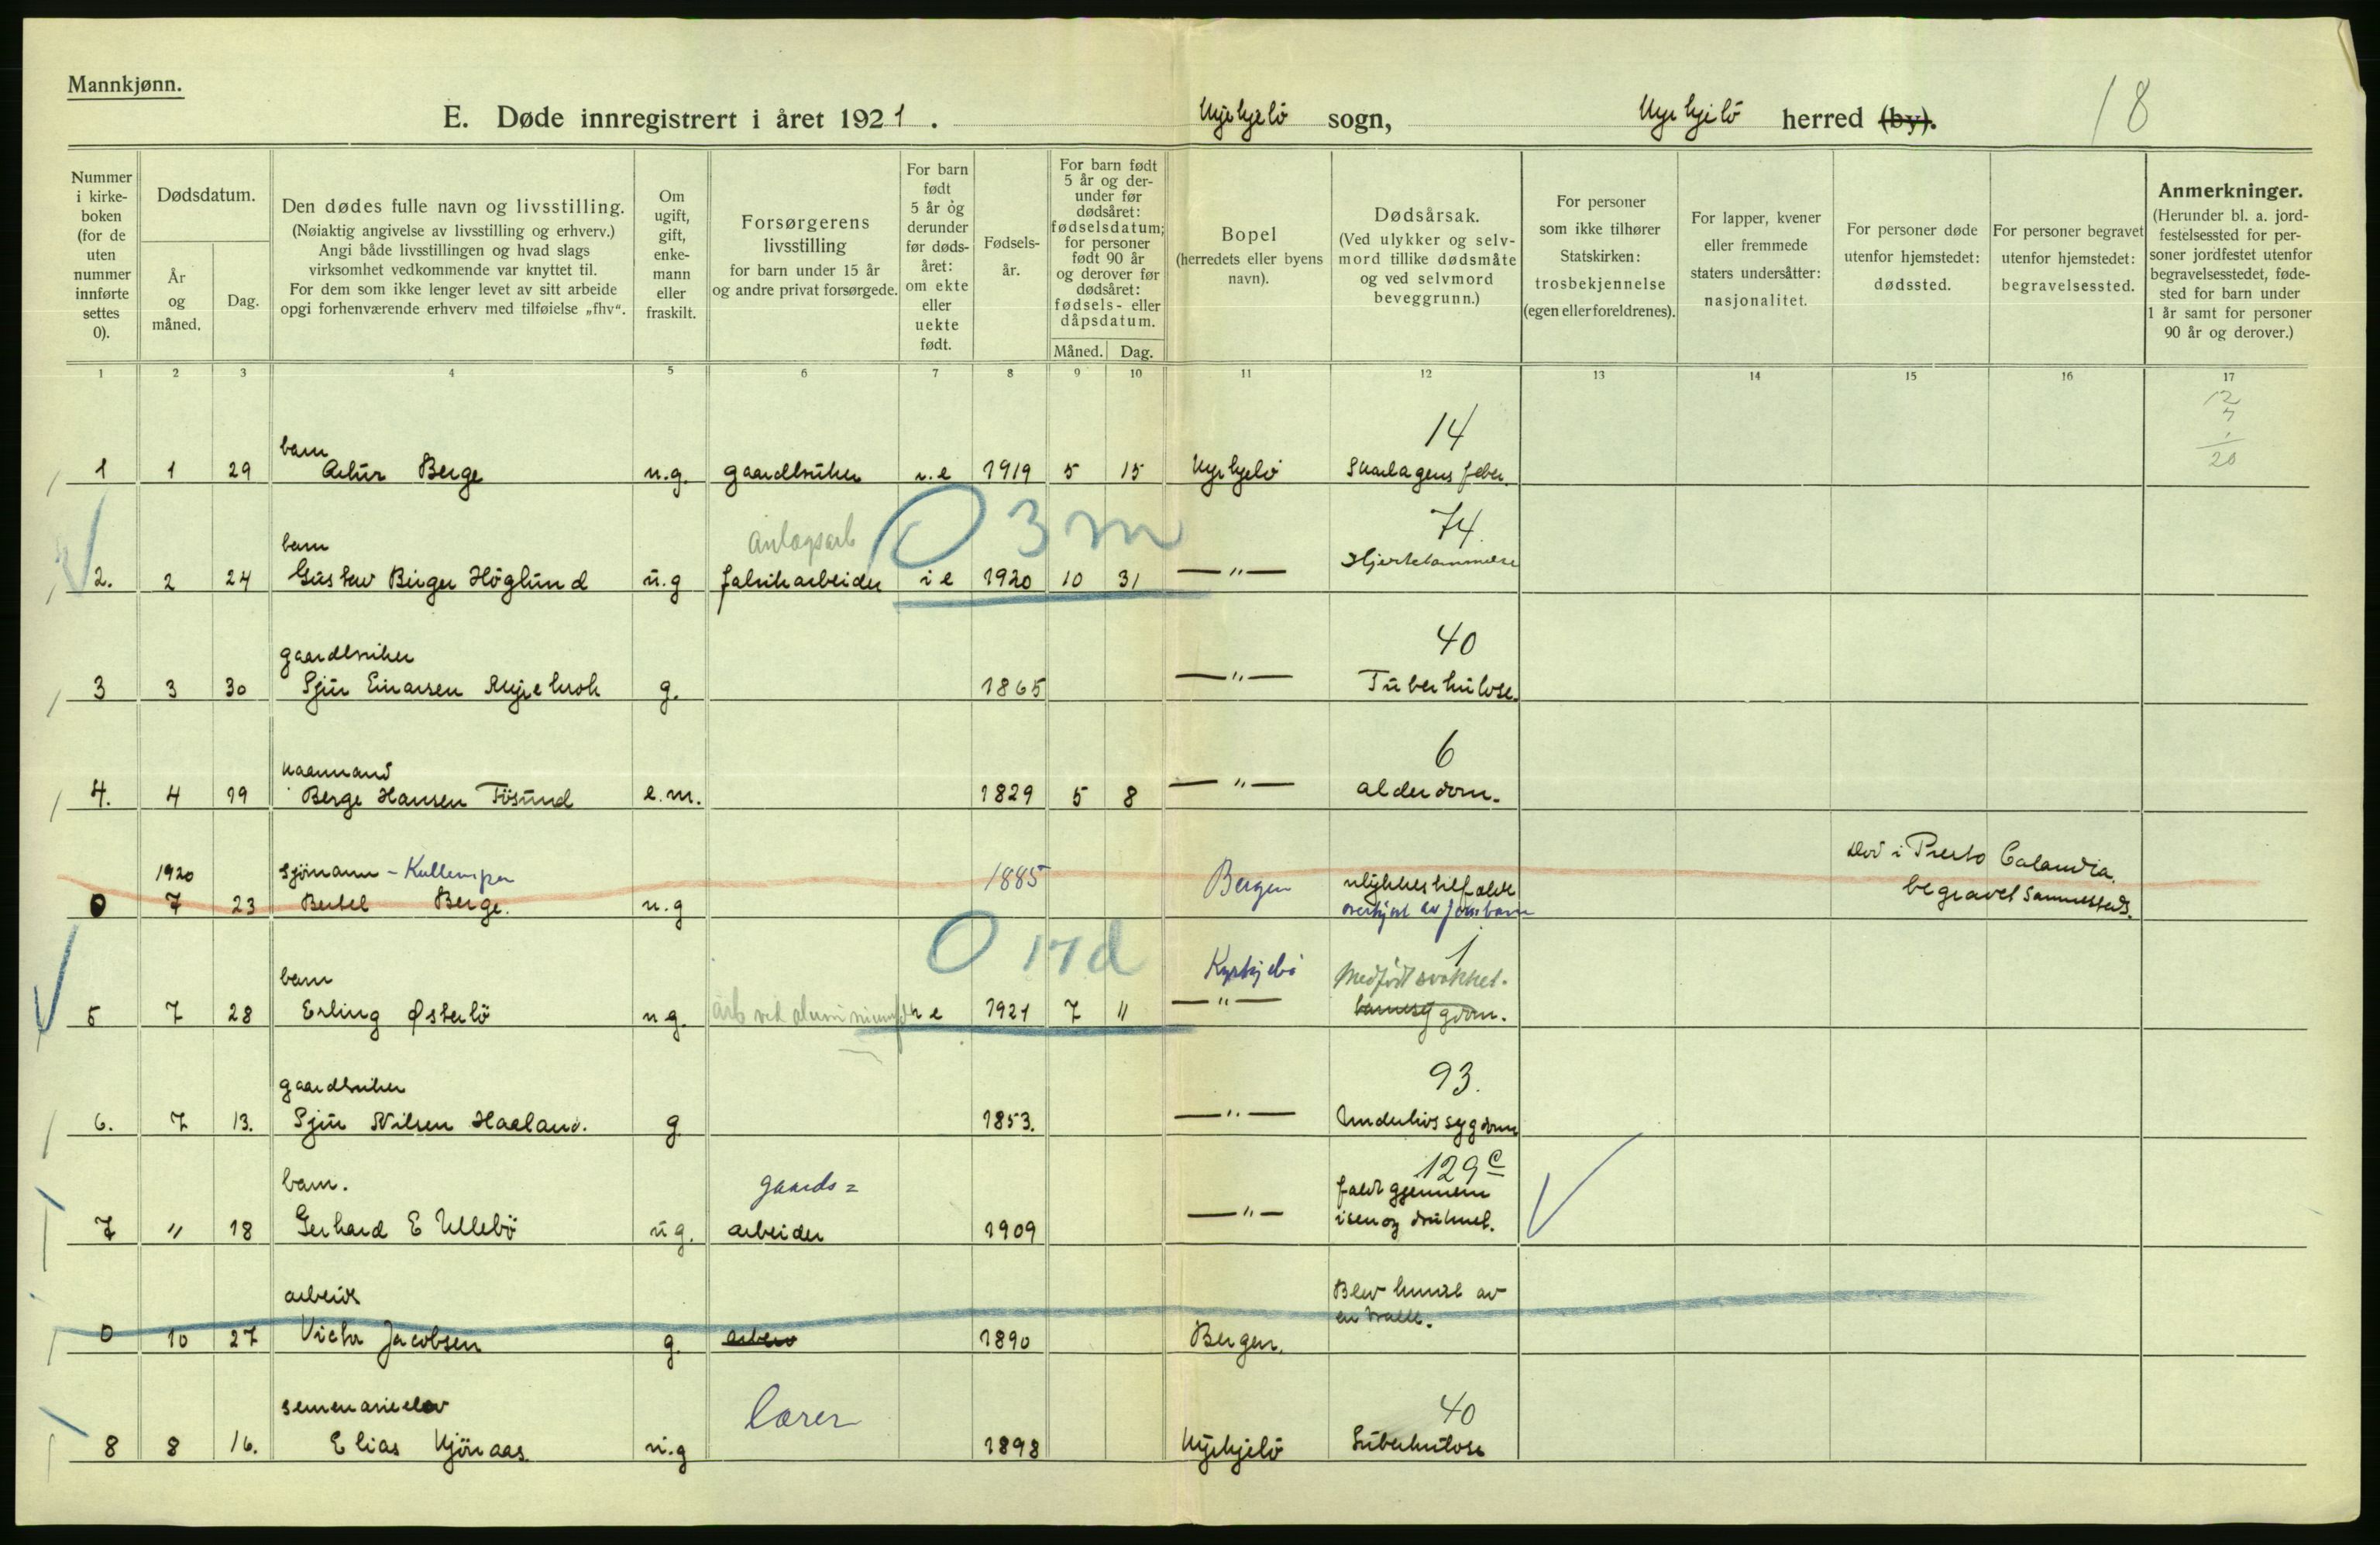 Mannkjønn.
E. Døde innregistrert i året 1921. Kyrkjebö sogn, Kyrkjebö herred (by).
18
Nummer i kirkeboken (for de uten nummer innførte settes 0).
Dødsdatum.
År og måned.
Dag.
Den dødes fulle navn og livsstilling.
(Nøiaktig angivelse av livsstilling og erhverv.)
Angi både livsstillingen og hvad slags
virksomhet vedkommende var knyttet til.
For dem som ikke lenger levet av sitt arbeide
opgi forhenværende erhverv med tilføielse „fhv“.
Om ugift, gift, enkemann eller fraskilt.
Forsørgerens livsstilling
for barn under 15 år
og andre privat forsørgede.
For barn født 5 år og derunder før dødsåret: om ekte eller uekte født.
Fødselsår.
For barn født 5 år og derunder før dødsåret: fødselsdatum; for personer født 90 år og derover før dødsåret: fødsels- eller dåpsdatum.
Måned. Dag.
Bopel
(herredets eller byens navn).
Dødsårsak.
(Ved ulykker og selvmord tillike dødsmåte og ved selvmord beveggrunn.)
For personer som ikke tilhører Statskirken: trosbekjennelse (egen eller foreldrenes).
For lapper, kvener eller fremmede staters undersåtter: nasjonalitet.
For personer døde utenfor hjemstedet: dødssted.
For personer begravet utenfor hjemstedet: begravelsessted.
Anmerkninger.
(Herunder bl. a. jordfestelsessted for personer jordfestet utenfor begravelsesstedet, fødested for barn under 1 år samt for personer 90 år og derover.)
1 2 3 4 5 6 7 8 9 10 11 12 13 14 15 16 17
12
7
1
20
barn 14
1 1 29 Artur Berge u.g. gaardbruker i.e 1919 5 15 Kyrkjebö Skarlagens feber.
0 3 m
barn anlægsarb 74.
2. 2 24 Gustav Birger Höglund u.g fabrikarbeider i e 1920 10 31 —"— Hjertelammelse
gaardbruker 40
3 3 30 Sjur Einarsen Myrekrok g. 1865 —"— Tuberkulose.
kaarmand 6
4. 4 19 Berge Hansen Tösund e.m. 1829 5 8 —"— alderdom.
1920 sjömann - 1885 Bergen ulykkestilfælde död i Puerto Calandia.
0 7 23 Bertel Berge. u.g overkjört av jernbane begravet sammesteds.
0 17 d
barn Kyrkjebö 1 Medfödt svakhet.
5 7 28 Erling Østerbö u g. arb ved e 1921 7 11 —"— barnesygdom.
gaardbruker 93.
6. 7 13. Sjur Nilsen Haaland. g. 1853. —"— Underlivssygdom
barn. gaards= 129 c faldt gjennem
7 " 18 Gerhard E Ullebö u g. arbeider 1909 —"— isen og druknet.
arbeid. Blev knust av
0 10 27 Victor Jacobsen g. 1890 Bergen. en tralle.
semenarieelev lærer 40
8 8 16. Elias Kjöraas. u.g 1898 Kyrkjebö Tuberkulose